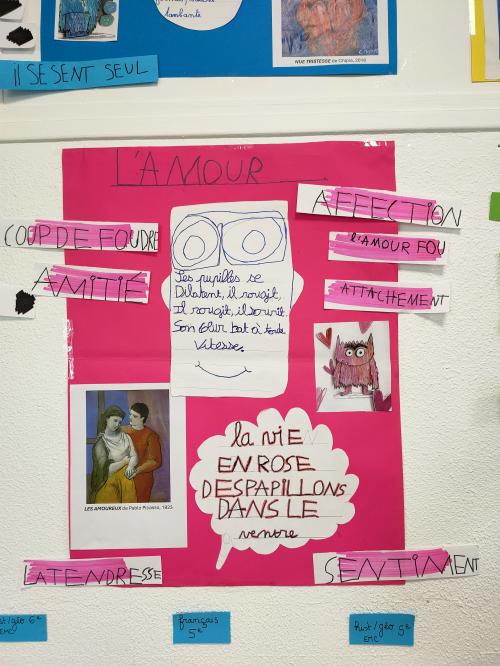 tambante
NUE TRISTESSE de Chipix, 2016
iL SE SENT SEUL
L'AMOUR
AFFECTION
COUP DE FOUDRE
l'AMOUR FOU
AMITIÉ
ATTACHEMENT
Ses pupilles se
Dilatent, il rougit,
Il rougit, il sourit.
Son cœur bat à toute
Vitesse.
la viE
EN ROSE
DES PAPILLONS
DANS LE
ventre
LES AMOUREUX de Pablo Picasso, 1923
LA TENDRESSE
SENTIMENT
hist/géo 6e
EMC
français
5e
hist/géo 5e
EMC